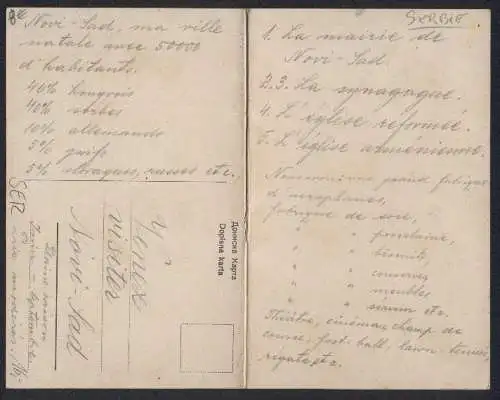 8€
Novi-Sad, ma ville
natale avec 50000
d'habitants.
40% hongrois
40% serbes
10% allemands
5% juifs
5% slovaques, russes etc.
SER
Venez
visiter
Novi-Sad
Дописна Карта
Dopisna karta
SERBIE
1. La mairie de
Novi-Sad.
2.3. La synagogue.
4. L'église réformée.
5. L'église armenienne.
d'aeroplanes,
fabrique de soie,
" " porcelaine,
" " biscuits,
" " conserves
" " meubles
" " etc.
Théâtre, cinémas, champ de
course, foot-ball, lawn-tennis,
etc.